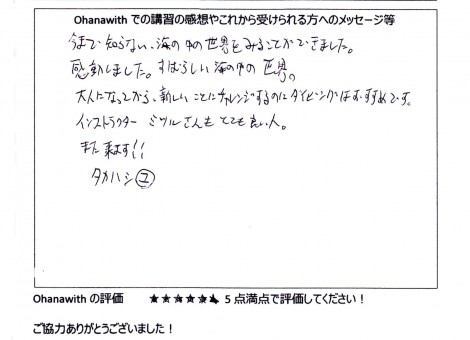 Ohanawith での講習の感想やこれから受けられる方へのメッセージ等
今まで知らない、海の中の世界をみることができました。
感動しました。すばらしい海の中の世界。
大人になってから、新しいことにチャレンジするのにダイビングはおすすめです。
インストラクター ミツルさんもとても良い人。
また来ます!!
タカハシ ユ
Ohanawith の評価 ★★★★★ 5 点満点で評価してください！
ご協力ありがとうございました！